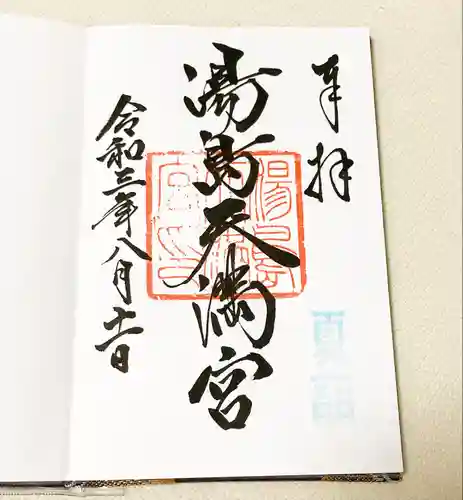 奉拝
湯島天満宮
令和三年八月十一日